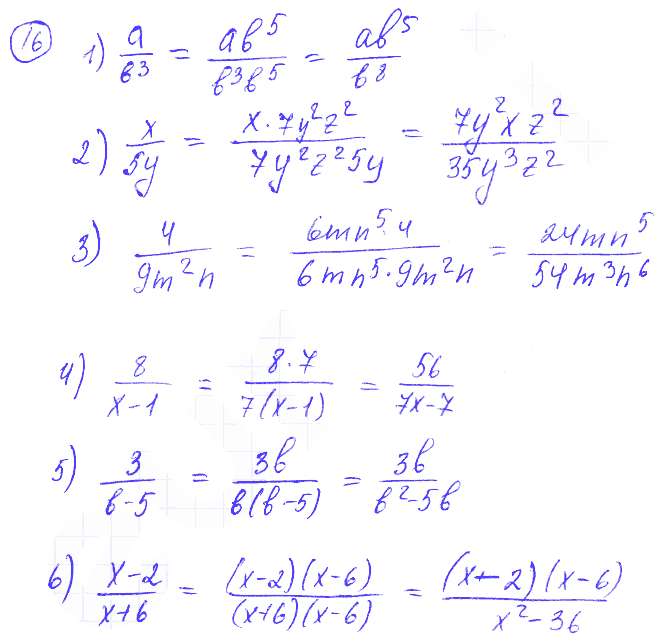 16 1) a/в³ = aв⁵/в³в⁵ = aв⁵/в⁸
2) x/5y = x·7y²z²/7y²z²5y = 7y²xz²/35y³z²
3) 4/9m²n = 6mn⁵·4/6mn⁵·9m²n = 24mn⁵/54m³n⁶
4) 8/x-1 = 8·7/7(x-1) = 56/7x-7
5) 3/в-5 = 3в/в(в-5) = 3в/в²-5в
6) x-2/x+6 = (x-2)(x-6)/(x+6)(x-6) = (x-2)(x-6)/x²-36